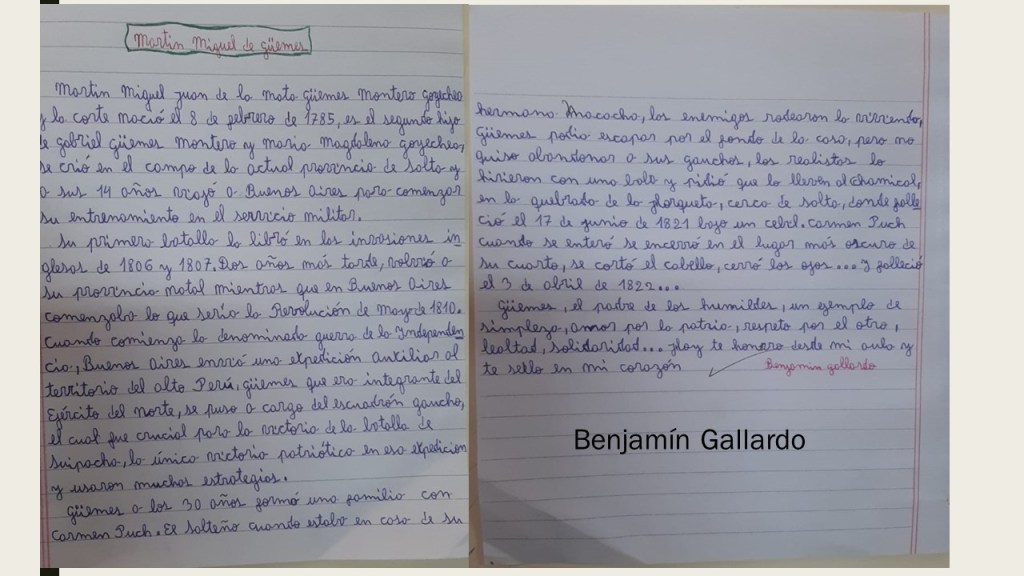 Martin Miguel de güemes
Martin Miguel juan de la mata güemes Montero goyechea
y la corte nació el 8 de febrero de 1785, es el segundo hijo
de gabriel güemes montero y maria magdalena goyechea,
se crió en el campo de la actual provincia de salta y
a sus 14 años viajó a Buenos aires para comenzar
su entrenamiento en el servicio militar.
Su primera batalla la libró en las invasiones in
glesas de 1806 y 1807. Dos años más tarde, volvió a
su provincia natal mientras que en Buenos Aires
comenzaba lo que sería la Revolución de Mayo de 1810.
Cuando comienza la denominada guerra de la Independen
cia, Buenos aires envió una expedición auxiliar al
territorio del alto Perú, güemes que era integrante del
Ejército del norte, se puso a cargo del escuadrón gaucho,
el cual fue crucial para la victoria de la batalla de
suipacha, la única victoria patriótica en esa expedicion
y usaron muchas estrategias.
güemes a los 30 años formó una familia con
Carmen Puch. El Salteño cuando estaba en casa de su
hermana Macacha, los enemigos rodearon la vivienda,
güemes podia escapar por el fondo de la casa, pero no
quiso abandonar a sus gauchos, los realistas lo
hirieron con una bala y pidió que lo lleven al chamical,
en la quebrada de la horqueta, cerca de salta, donde falle
ció el 17 de junio de 1821 bajo un cebil. Carmen Puch
cuando se enteró se encerró en el lugar más oscuro de
su cuarto, se cortó el cabello, cerró los ojos ... y falleció
el 3 de abril de 1822...
Güemes, el padre de los humildes, un ejemplo de
simpleza, amor por la patria, respeto por el otro,
lealtad, solidaridad... Hoy te honro desde mi aula y
te sello en mi corazón
Benjamin gallardo
Benjamín Gallardo